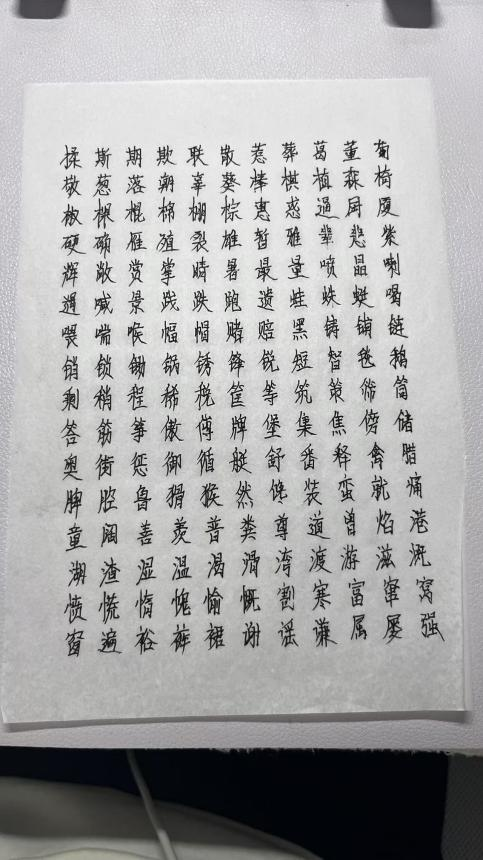 揉斯期欺联散惹葬葛董葡
敬葱落朝辜葵棒棋植森椅
椒棵棍棉棚棕惠惑逼厨厦
硬确雁殖裂雄暂雅辈悲紫
辉敞赏掌晴暑最量喷晶喇
遇喊景践跌跑遗蛙蛛蜓喝
喂喘喉幅帽赌赔黑铸铺链
销锁锄锅锈锋锐短智毯鹅
剩稍程稀税筐等筑策筛筒
答筋筝傲傅牌堡集焦傍储
奥街惩御循艇舒番释禽腊
脾腔鲁猾猴然馋装蛮就痛
童阔善羡普粪尊道曾焰港
湖渣湿温渴滑湾渡游滋溉
愤慌惰愧愉慨割寒富窜窝
窗遍裕裤裙谢谣谦属屡强